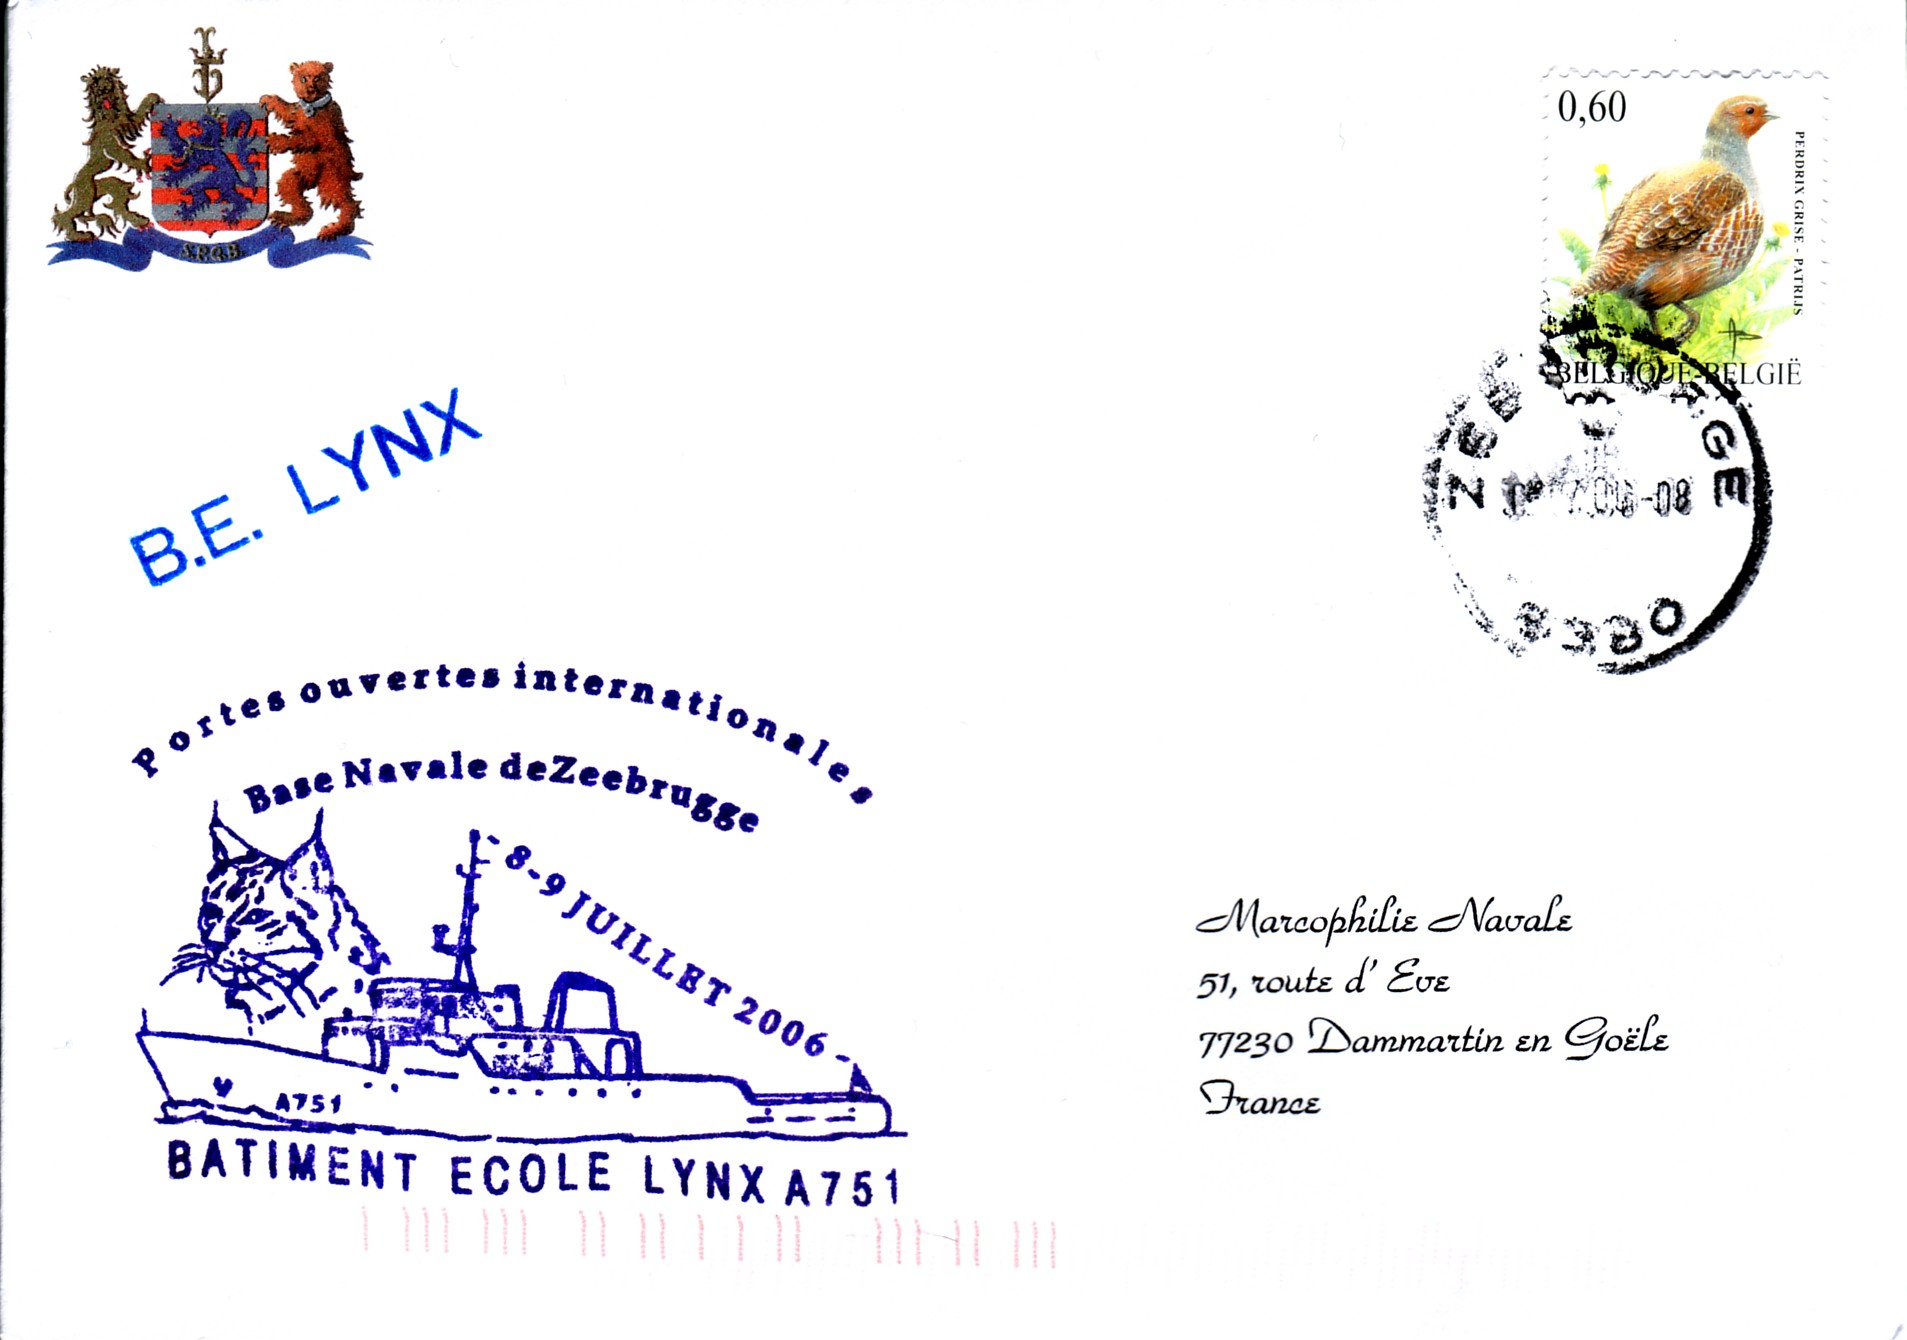 S.P.Q.B.
0,60
PERDRIX GRISE - PATRIJS
BELGIQUE-BELGIË
B.E. LYNX
-08
Portes ouvertes internationales
Base Navale deZeebrugge
- 8-9 JUILLET 2006 -
A751
BATIMENT ECOLE LYNX A751
Marcophilie Navale
51, route d' Eve
77230 Dammartin en Goële
France